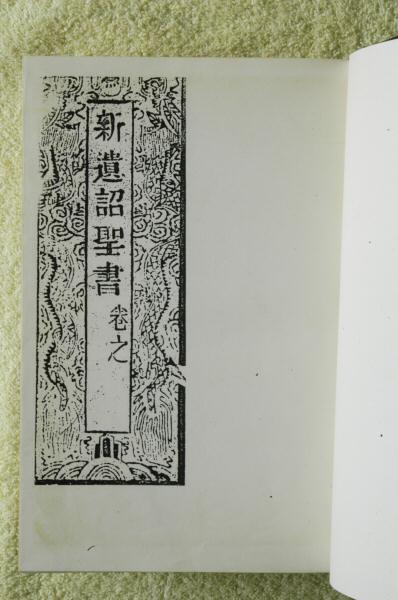 新遺詔聖書卷之